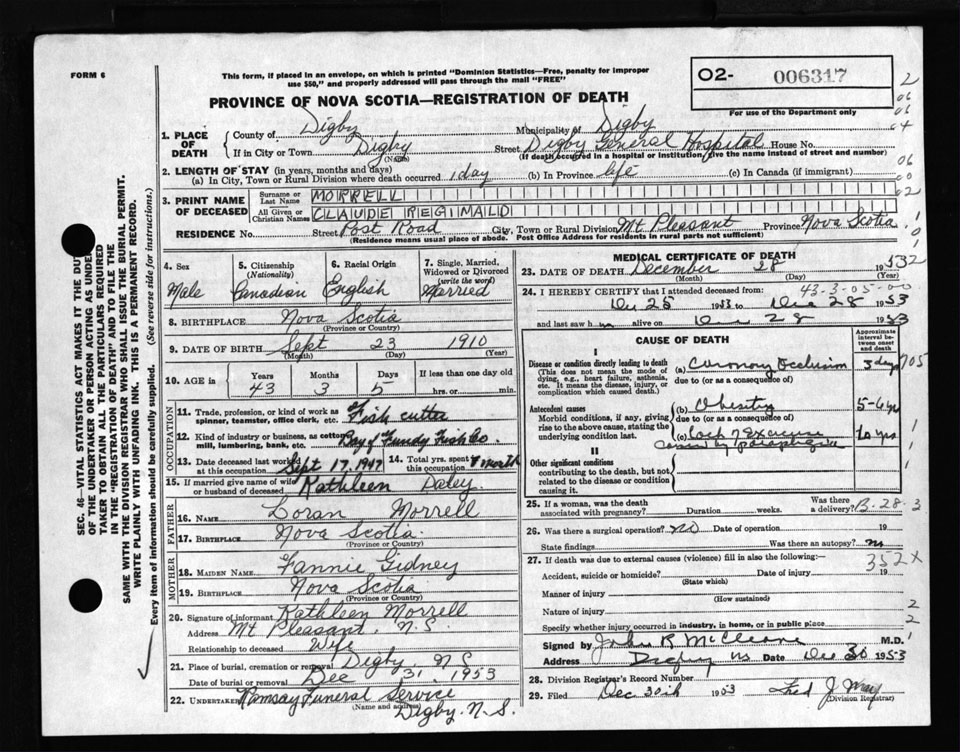 FORM 6
This form, if placed in an envelope, on which is printed "Dominion Statistics—Free, penalty for improper
use $50," and properly addressed will pass through the mail "FREE"
O2- 006317
For use of the Department only
PROVINCE OF NOVA SCOTIA—REGISTRATION OF DEATH
2
06
06
04
06
00
02
SEC. 46—VITAL STATISTICS ACT MAKES IT THE DUTY
OF THE UNDERTAKER OR PERSON ACTING AS UNDER-
TAKER TO OBTAIN ALL THE PARTICULARS REQUIRED
IN THE "REGISTRATION OF DEATH" AND TO FILE THE
SAME WITH THE DIVISION REGISTRAR WHO SHALL ISSUE THE BURIAL PERMIT.
WRITE PLAINLY WITH UNFADING INK. THIS IS A PERMANENT RECORD.
Every item of information should be carefully supplied. (See reverse side for instructions.)
1. PLACE OF DEATH
County of Digby Municipality of Digby
If in City or Town Digby (Name) Street Digby General Hospital House No.
(If death occurred in a hospital or institution, give the name instead of street and number)
2. LENGTH OF STAY (in years, months and days)
(a) In City, Town or Rural Division where death occurred 1 day (b) In Province life (c) In Canada (if immigrant)
3. PRINT NAME OF DECEASED
Surname or Last Name MORRELL
All Given or Christian Names CLAUDE REGINALD
RESIDENCE No. Street Post Road City, Town or Rural Division Mt Pleasant Province Nova Scotia
(Residence means usual place of abode. Post Office Address for residents in rural parts not sufficient)
4. Sex 5. Citizenship (Nationality) 6. Racial Origin 7. Single, Married, Widowed or Divorced (write the word)
Male Canadian English Married
8. BIRTHPLACE Nova Scotia
(Province or Country)
9. DATE OF BIRTH Sept 23 1910
(Month) (Day) (Year)
10. AGE in Years Months Days If less than one day old
43 3 5 hrs. or min.
OCCUPATION
11. Trade, profession, or kind of work as spinner, teamster, office clerk, etc. Fish cutter
12. Kind of industry or business, as cotton mill, lumbering, bank, etc. Bay of Fundy Fish Co.
13. Date deceased last worked at this occupation Sept 17, 1947 14. Total yrs. spent in this occupation month
15. If married give name of wife or husband of deceased Kathleen Daley
FATHER
16. NAME Loran Morrell
17. BIRTHPLACE Nova Scotia
(Province or Country)
MOTHER
18. MAIDEN NAME Fannie Gidney
19. BIRTHPLACE Nova Scotia
(Province or Country)
20. Signature of informant Kathleen Morrell
Address Mt Pleasant, N.S.
Relationship to deceased Wife
21. Place of burial, cremation or removal Digby, N.S
Date of burial or removal Dec 31, 1953
22. UNDERTAKER Ramsay Funeral Service
(Name and address) Digby. N.S.
MEDICAL CERTIFICATE OF DEATH
23. DATE OF DEATH December 28 1953
(Month) (Day) (Year)
43-3-05-00
24. I HEREBY CERTIFY that I attended deceased from:
Dec 25 1953 to Dec 28 1953
and last saw him alive on Dec 28 1953
CAUSE OF DEATH
Approximate interval between onset and death
I
Disease or condition directly leading to death
(This does not mean the mode of dying, e.g., heart failure, asthenia, etc. It means the disease, injury, or complication which caused death.)
(a) Coronary Occlusion 3 days
due to (or as a consequence of)
Antecedent causes
Morbid conditions, if any, giving rise to the above cause, stating the underlying condition last.
(b) Obesity 5-6 yrs
due to (or as a consequence of)
(c) Lack of Exercise 10 yrs
caused by paraplegia
II
Other significant conditions
contributing to the death, but not related to the disease or condition causing it.
25. If a woman, was the death associated with pregnancy? Duration weeks. Was there a delivery? B-28-3
26. Was there a surgical operation? no Date of operation 19
State findings Was there an autopsy? no
27. If death was due to external causes (violence) fill in also the following:— 352X
Accident, suicide or homicide? Date of injury 19
(State which)
Manner of injury
(How sustained)
Nature of injury
Specify whether injury occurred in industry, in home, or in public place
Signed by John R McCleave M.D.
Address Digby NS Date Dec 30 1953
28. Division Registrar's Record Number
29. Filed Dec 30th 1953 Fred J
(Division Registrar)